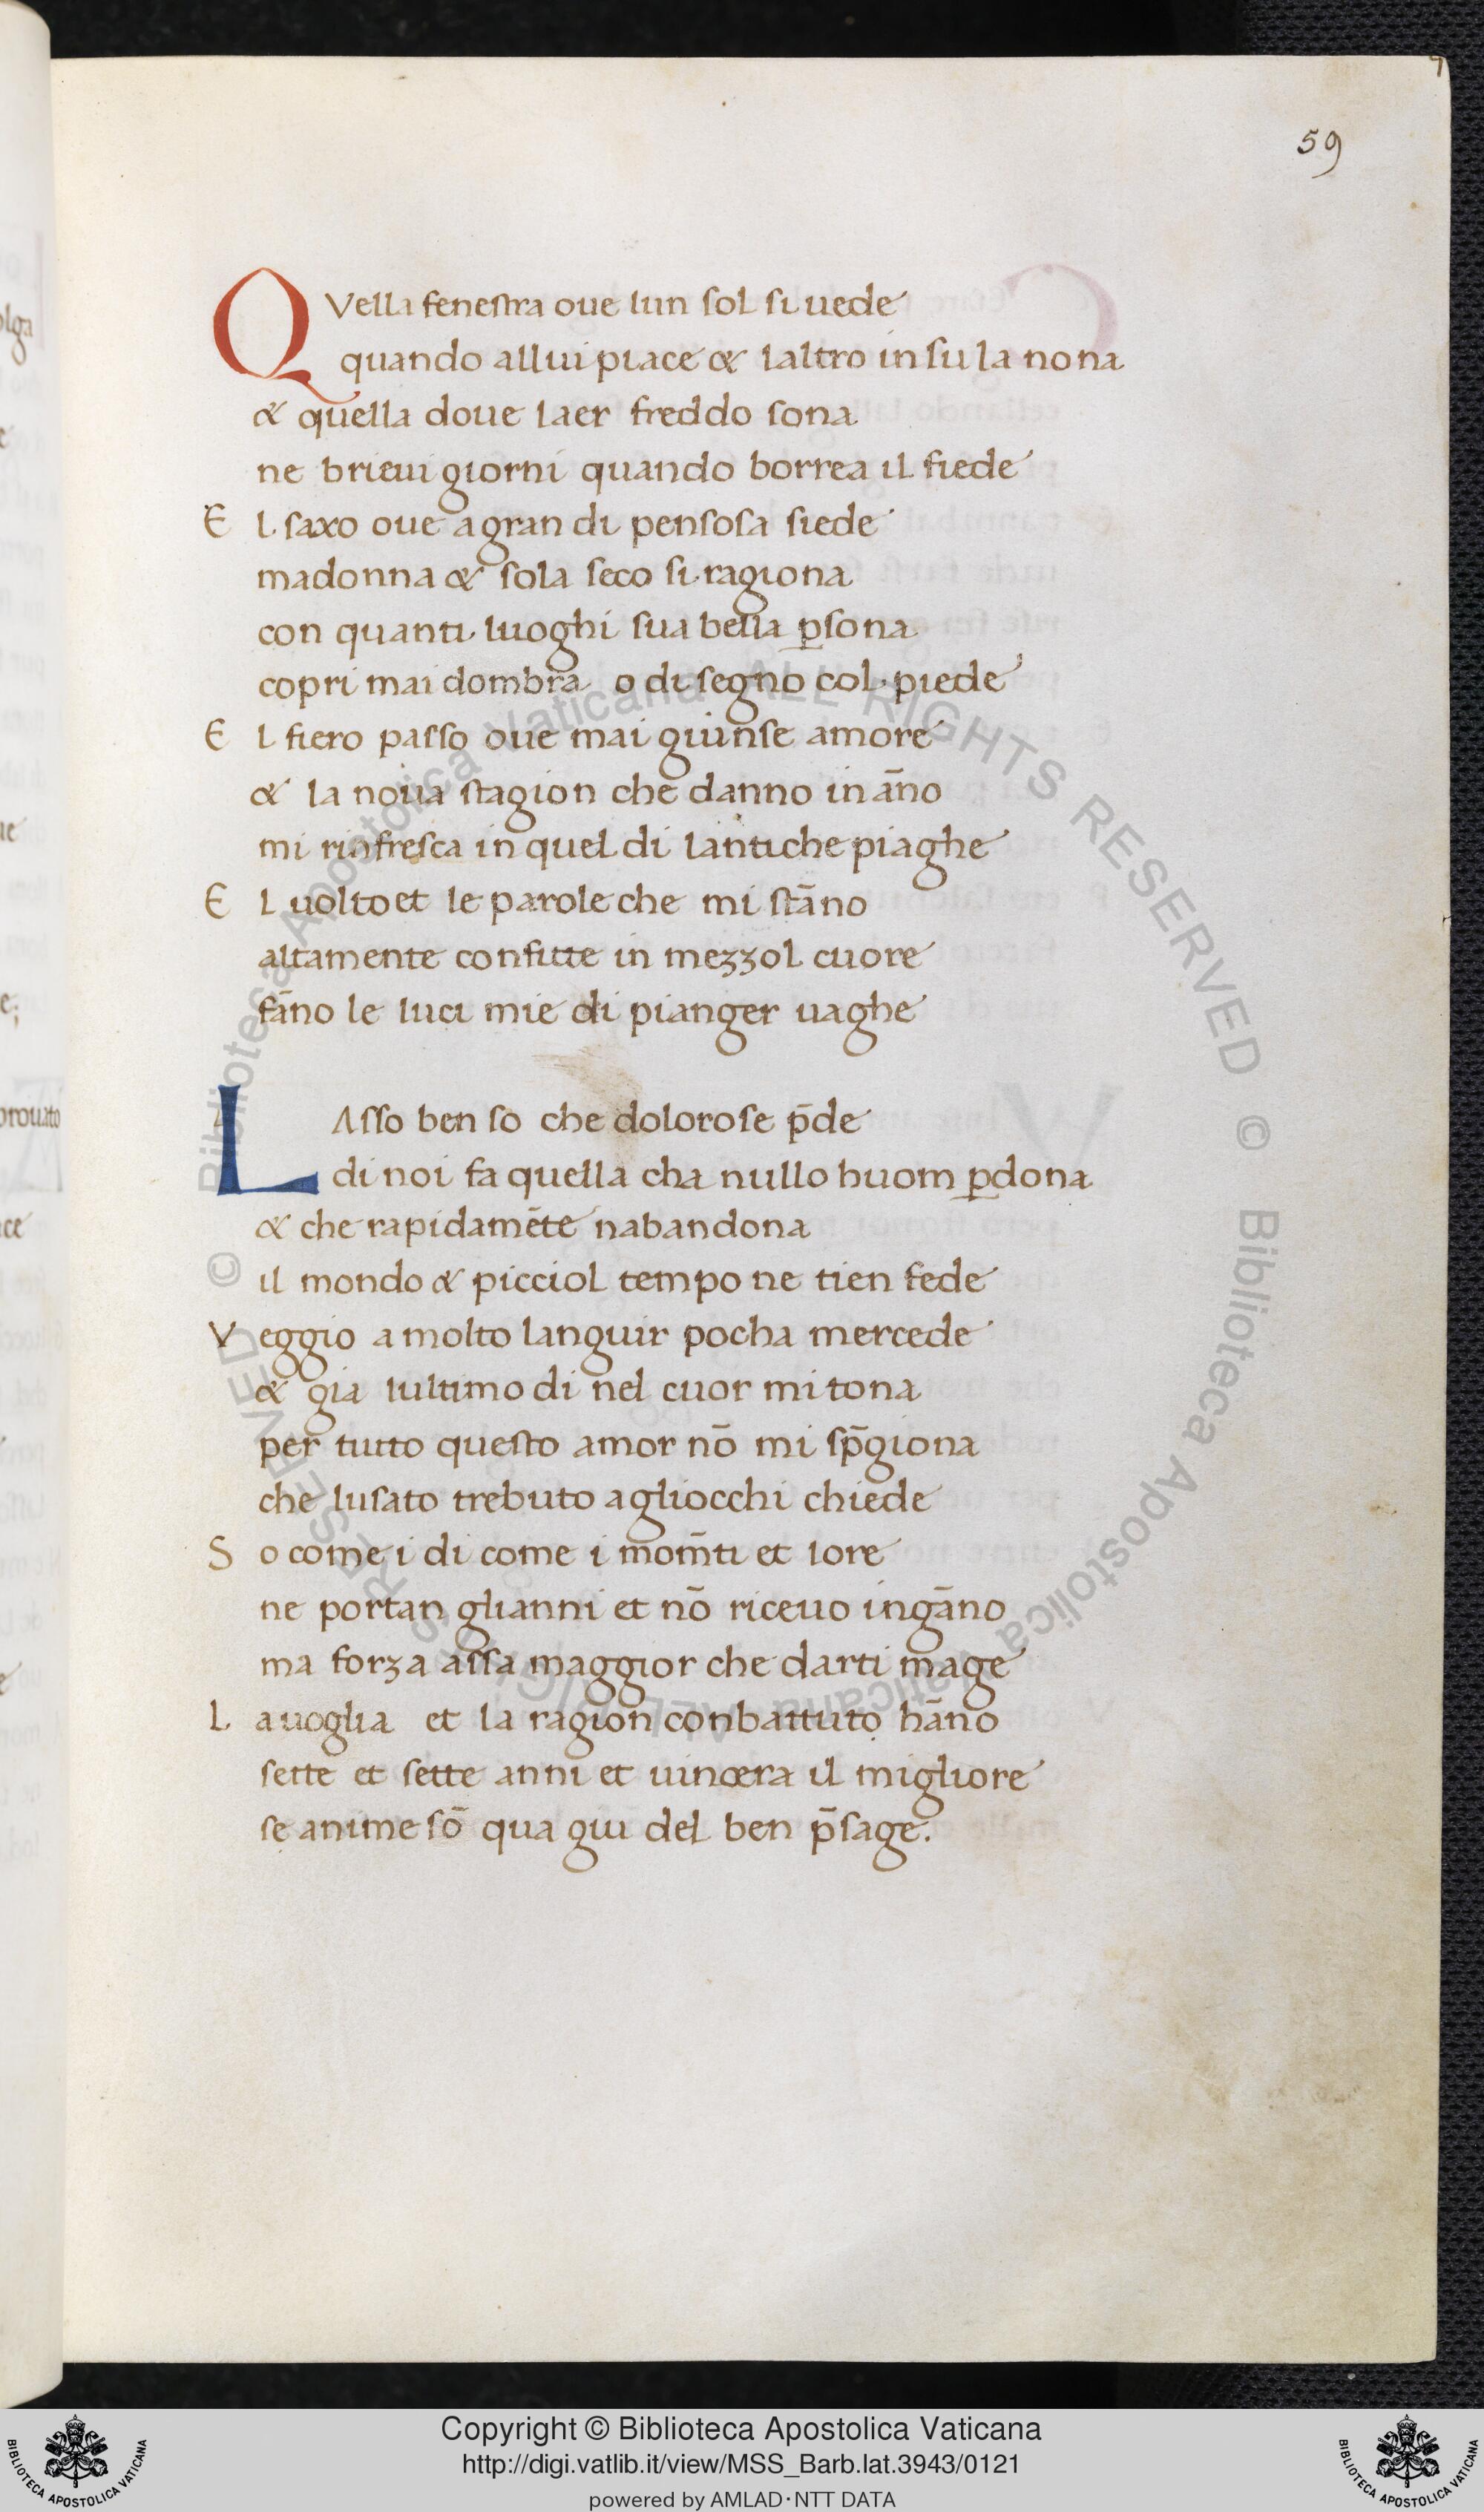 59
QVella fenestra oue lun sol si uede
quando allui piace & laltro in su la nona
& quella doue laer freddo sona
ne brieui giorni quando borrea il fiede
E l saxo oue a gran di pensosa siede
madonna & sola seco si ragiona
con quanti luoghi sua bella p̱sona
copri mai dombra o disegno col piede
E l fiero passo oue mai giunse amore
& la noua stagion che danno in āno
mi rinfresca in quel di lantiche piaghe
E l uolto et le parole che mi stāno
altamente confitte in mezzol cuore
fāno le luci mie di pianger uaghe
LAsso ben so che dolorose p̄de
di noi fa quella cha nullo huom p̱dona
& che rapidamēte nabandona
il mondo & picciol tempo ne tien fede
V eggio a molto languir pocha mercede
& gia lultimo di nel cuor mi tona
per tutto questo amor nō mi sp̄giona
che lusato trebuto agliocchi chiede
S o come i di come i mom̄ti et lore
ne portan glianni et nō riceuo ingāno
ma forza assa maggior che darti mage
L a uoglia et la ragion conbattuto hāno
sette et sette anni et uincera il migliore
se anime sō qua giu del ben p̄sage.
© Biblioteca Apostolica Vaticana ALL RIGHTS RESERVED © Biblioteca Apostolica Vaticana ALL RIGHTS RESERVED
Copyright © Biblioteca Apostolica Vaticana
http://digi.vatlib.it/view/MSS_Barb.lat.3943/0121
powered by AMLAD·NTT DATA
BIBLIOTECA APOSTOLICA VATICANA
BIBLIOTECA APOSTOLICA VATICANA